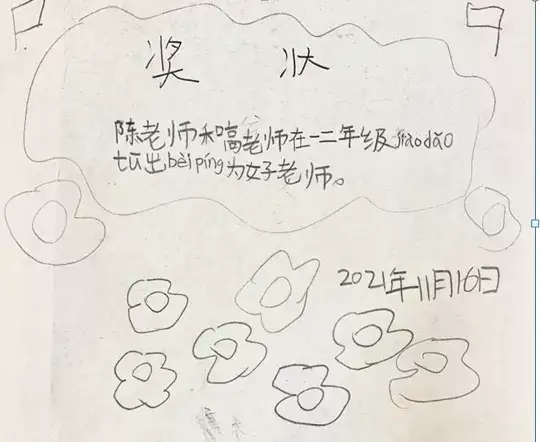 奖 状
陈老师和嗃老师在一二年级jiaodǎo
tū出bèipíng为好老师。
2021年11月16日